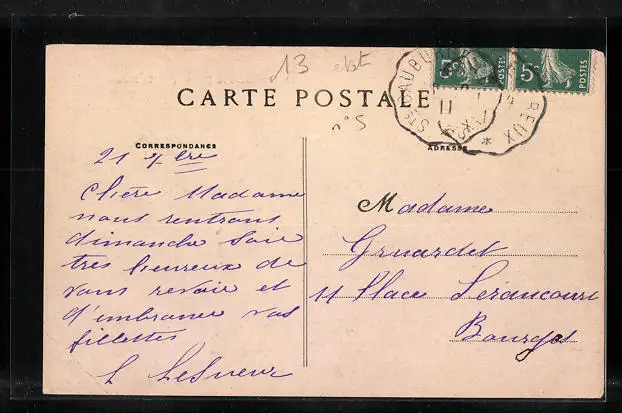 13
CARTE POSTALE
n° 5
5c POSTES
5c POSTES
CORRESPONDANCE
ADRESSE
21 7bre
Chère Madame
nous rentrons
dimanche soir
très heureux de
vous revoir et
d'embrasser vos
fillettes
L LeSueur
Madame
Gruardet
11 Place Séraucourt
Bourges